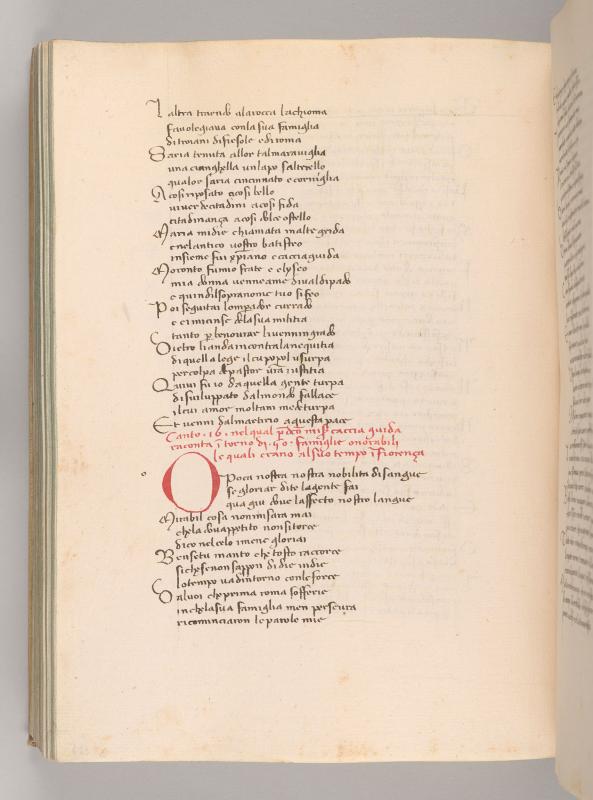 L altra traendo ala rocca la chioma
favolegiava con la sua famiglia
di troiani di fiesole e di roma
Saria tenuta allor tal maraviglia
una cianghella un lapo salterello
qual or saria cincinnato e corniglia
A cosi riposato a cosi bello
viver de citadini a cosi fida
citadinança a cosi dolce ostello
Maria mi die chiamata in alte grida
e nel antico vostro batisteo
insieme fui xpiano e cacciaguida
Moronto fu mio frate e elyseo
mia donna venne a me di val di pado
e quindi l sopranome tuo si feo
Poi seguitai lomperador currado
e ei mi cinse de la sua militia
tanto per ben ovrar li venni in grado
Dietro li andai incontra la nequitia
di quella lege il cu popol usurpa
per colpa del pastor vra iustitia
Quivi fu io da quella gente turpa
disviluppato dal mondo fallace
il cui amor molt anime deturpa
Et venni dal martirio a questa pace
Canto .16. nel qual pdco miss caccia guida
racconta i torno di .40. famiglie onorabili
le quali erano al suo tempo i Fiorença
O Poca nostra nostra nobilita di sangue
se gloriar di te la gente fai
qua giu dove laffecto nostro langue
Mirabil cosa non mi sara mai
che la dov appetito non si torce
dico nel celo i me ne gloriai
Ben se tu manto che tosto raccorce
si che se non sappon di die in die
lo tempo va dintorno con le force
Dal voi che prima roma sofferie
in che la sua famiglia men persevra
ricominciaron le parole mie